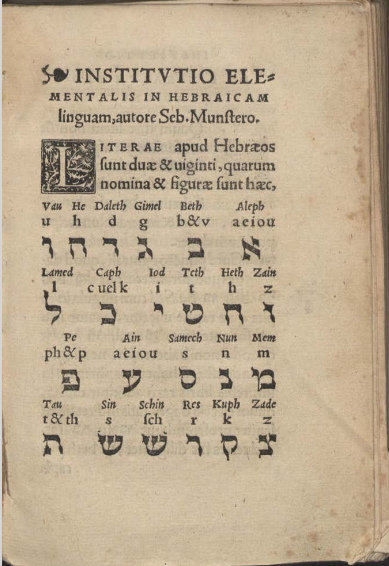 INSTITVTIO ELE=
MENTALIS IN HEBRAICAM
linguam, autore Seb. Munstero.
LITERAE apud Hebræos
sunt duæ & uiginti, quarum
nomina & figuræ sunt hæc,
Vau He Daleth Gimel Beth Aleph
u h d g b&v aeiou
א ב ג ד ה ו
Lamed Caph Iod Teth Heth Zain
l c uel k i t h z
ז ח ט י כ ל
Pe Ain Samech Nun Mem
ph&p aeiou s n m
מ נ ס ע פ
Tau Sin Schin Res Kuph Zade
t&th s sch r k z
צ ק ר ש ש ת